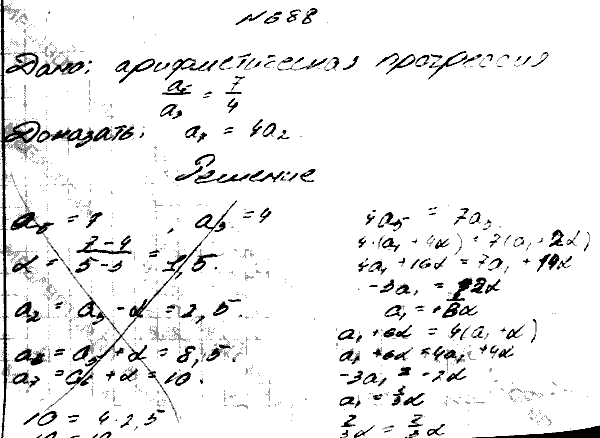 № 688
Дано: арифметическая прогрессия
a₅/a₃ = 7/4
Доказать: a₇ = 4a₂
Решение
a₅ = 7, a₃ = 4
d = (7-4)/(5-3) = 1,5.
a₂ = a₃ - d = 2,5.
a₆ = a₅ + d = 8,5.
a₇ = a₆ + d = 10.
10 = 4·2,5
4a₅ = 7a₃
4·(a₁ + 4d) = 7(a₁ + 2d)
4a₁ + 16d = 7a₁ + 14d
-3a₁ = 2d
a₁ + 6d = 4(a₁ + d)
a₁ + 6d = 4a₁ + 4d
-3a₁ = -2d
a₁ = ⅔d
⅔d = ⅔d